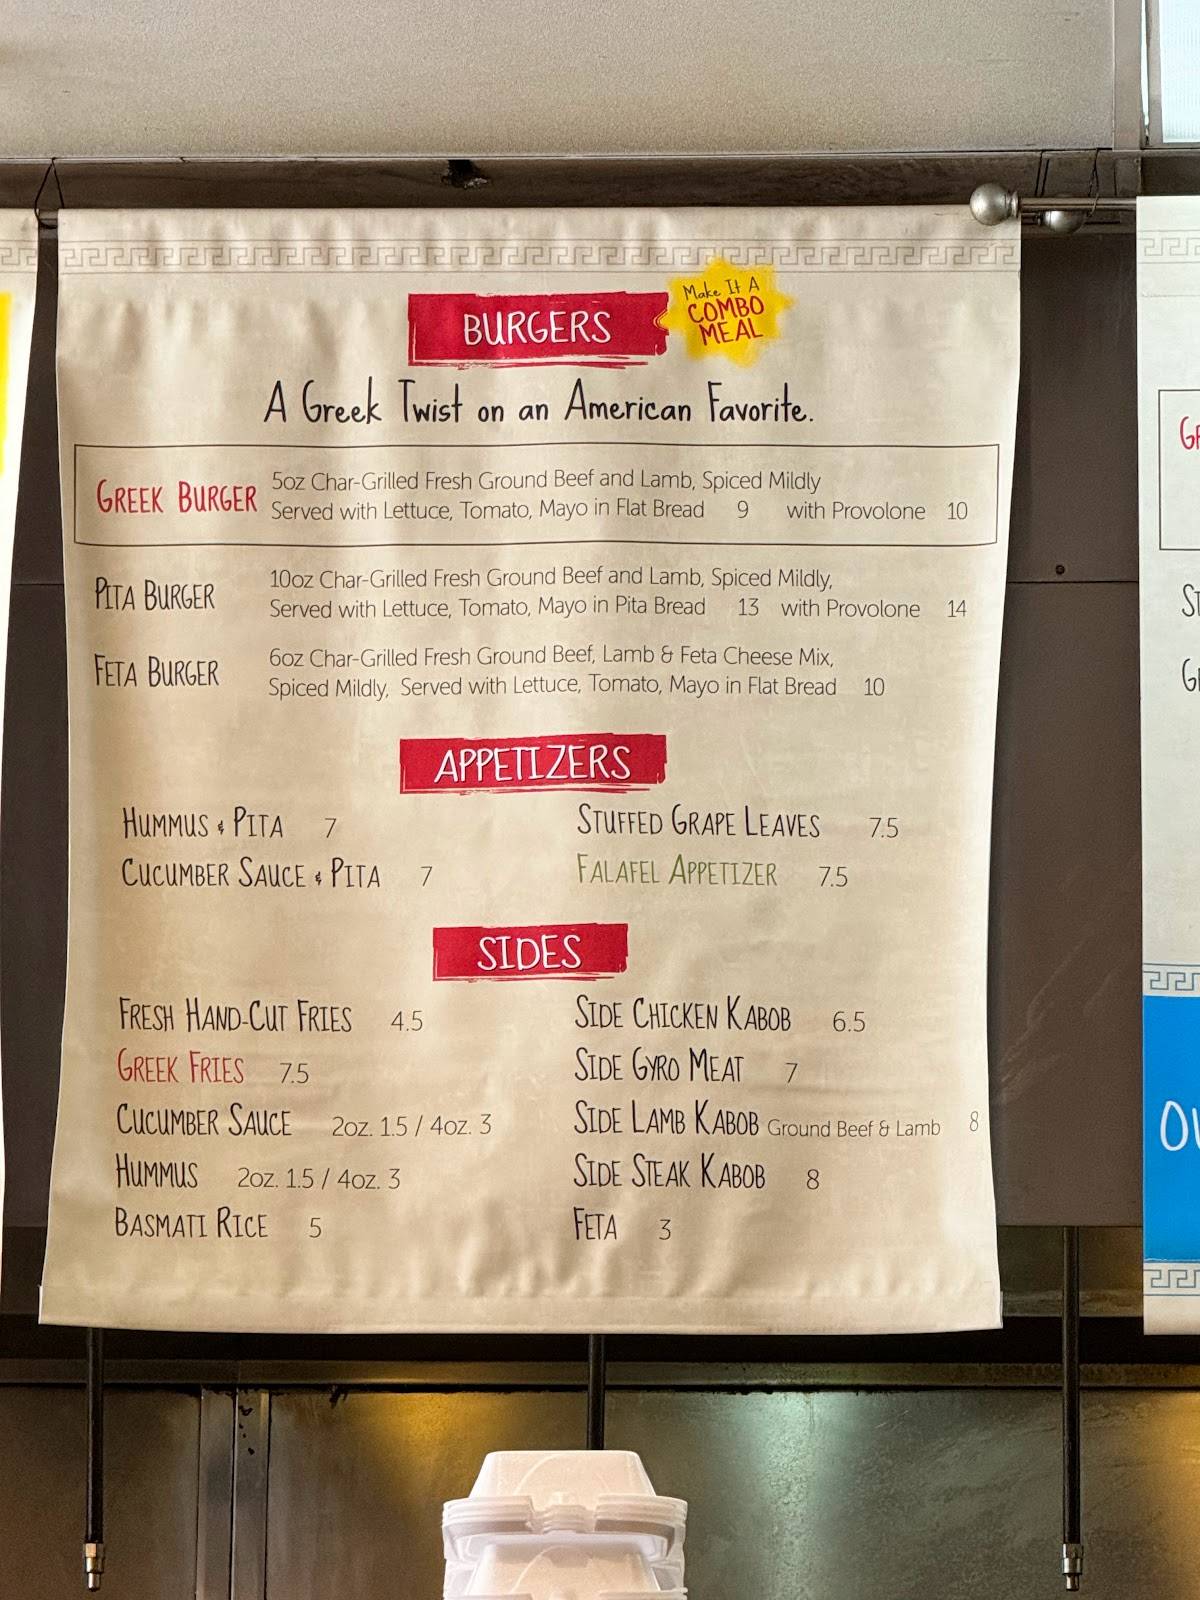 BURGERS
Make It A
COMBO
MEAL
A Greek Twist on an American Favorite.
GREEK BURGER
5oz Char-Grilled Fresh Ground Beef and Lamb, Spiced Mildly
Served with Lettuce, Tomato, Mayo in Flat Bread 9 with Provolone 10
PITA BURGER
10oz Char-Grilled Fresh Ground Beef and Lamb, Spiced Mildly,
Served with Lettuce, Tomato, Mayo in Pita Bread 13 with Provolone 14
FETA BURGER
6oz Char-Grilled Fresh Ground Beef, Lamb & Feta Cheese Mix,
Spiced Mildly, Served with Lettuce, Tomato, Mayo in Flat Bread 10
APPETIZERS
HUMMUS & PITA 7
CUCUMBER SAUCE & PITA 7
STUFFED GRAPE LEAVES 7.5
FALAFEL APPETIZER 7.5
SIDES
FRESH HAND-CUT FRIES 4.5
GREEK FRIES 7.5
CUCUMBER SAUCE 2oz. 1.5 / 4oz. 3
HUMMUS 2oz. 1.5 / 4oz. 3
BASMATI RICE 5
SIDE CHICKEN KABOB 6.5
SIDE GYRO MEAT 7
SIDE LAMB KABOB Ground Beef & Lamb 8
SIDE STEAK KABOB 8
FETA 3